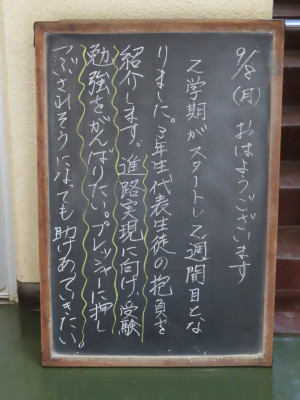 9/8(月) おはようございます
2学期がスタートし2週間目とな
りました。3年生代表生徒の抱負を
紹介します。進路実現に向け、受験
勉強をがんばりたい。プレッシャーに押し
つぶされそうになっても助けあっていきたい。